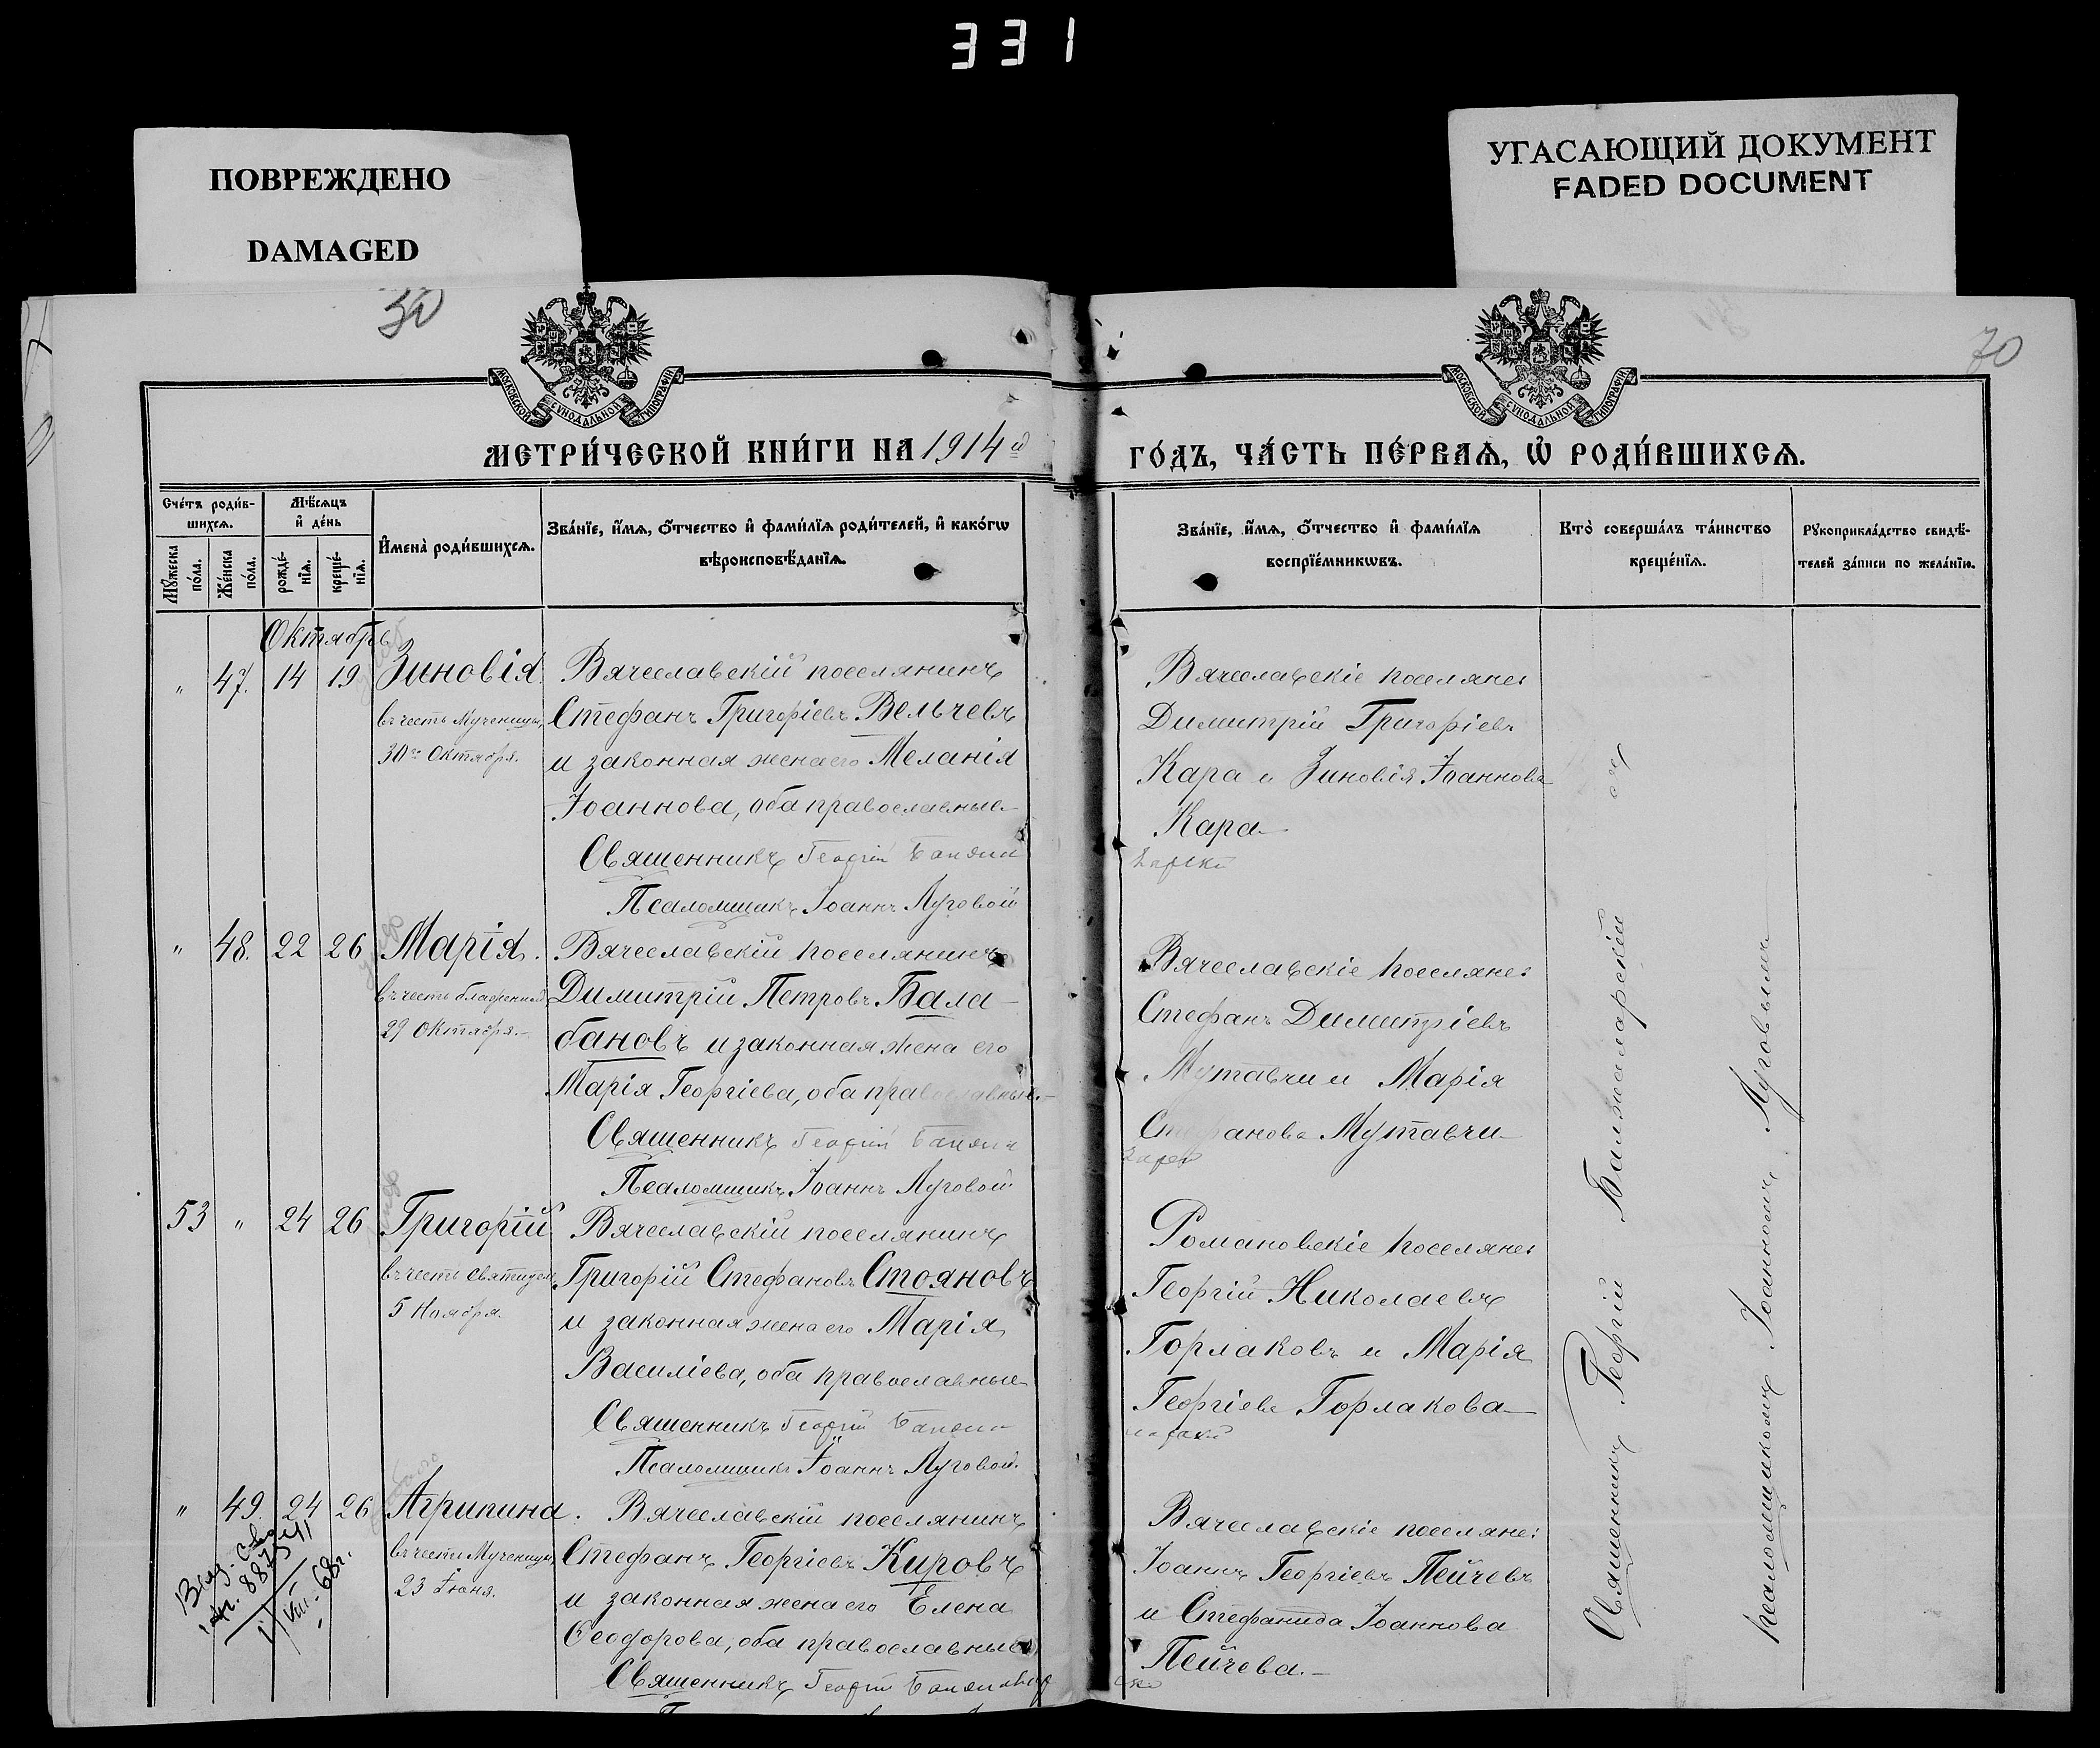 331
ПОВРЕЖДЕНО
DAMAGED
УГАСАЮЩИЙ ДОКУМЕНТ
FADED DOCUMENT
30
70
МОСКОВСКОЙ СѴНОДАЛЬНОЙ ТИПОГРАФІИ
МОСКОВСКОЙ СѴНОДАЛЬНОЙ ТИПОГРАФІИ
МЕТРИ́ЧЕСКОЙ КНИ́ГИ НА 1914 й
ГО́ДЪ, ЧА́СТЬ ПЕ́РВАѦ, Ѽ РОДИ́ВШИХСѦ.
Сче́тъ роди́в-
шихсѧ.
Мꙋ́жеска
по́ла.
Же́нска
по́ла.
Мѣ́сѧцъ
и҆ де́нь
рожде́-
нїѧ.
креще́-
нїѧ.
И҆мена̀ роди́вшихсѧ.
Зва́нїе, и҆́мѧ, ѻ҆́тчество и҆ фами́лїѧ роди́телей, и҆ како́гѡ
вѣроисповѣ́данїѧ.
Зва́нїе, и҆́мѧ, ѻ҆́тчество и҆ фами́лїѧ
воспрїе́мникѡвъ.
Кто̀ соверша́лъ та́инство
креще́нїѧ.
Рꙋкоприкла́дство свидѣ́-
телей за́писи по жела́нїю.
Октябрь
" 47. 14 19 Зиновія.
въ честь Мученицы,
30го Октября.
Вячеславскій поселянинъ
Стефанъ Григоріевъ Вельчевъ
и законная жена его Меланія
Іоаннова, оба православные
Священникъ Георгій
Псаломщикъ Іоаннъ Луговой
Вячеславскіе поселяне:
Димитрій Григоріевъ
Кара и Зиновія Іоаннова
Кара
" 48. 22 26 Марія.
въ честь блаженной
29 Октября.
Вячеславскій поселянинъ
Димитрій Петровъ Бала-
бановъ и законная жена его
Марія Георгіева, оба православные.
Священникъ Георгій
Псаломщикъ Іоаннъ Луговой
Вячеславскіе поселяне:
Стефанъ Димитріевъ
Мутавчи и Марія
Стефанова Мутавчи
53 " 24 26 Григорій
въ честь Святителя
5 Ноября.
Вячеславскій поселянинъ
Григорій Стефановъ Стояновъ
и законная жена его Марія
Василіева, оба православные
Священникъ Георгій
Псаломщикъ Іоаннъ Луговой.
Романовскіе поселяне:
Георгій Николаевъ
Горлаковъ и Марія
Георгіева Горлакова
" 49. 24 26 Агрипина.
въ честь Мученицы
23 Іюня.
Вячеславскій поселянинъ
Стефанъ Георгіевъ Кировъ
и законная жена его Елена
Ѳеодорова, оба православные
Священникъ Георгій
Вячеславскіе поселяне:
Іоаннъ Георгіевъ Пейчевъ
и Стефанида Іоаннова
Пейчева.
Священникъ Георгій
псаломщикомъ Іоанномъ Луговымъ